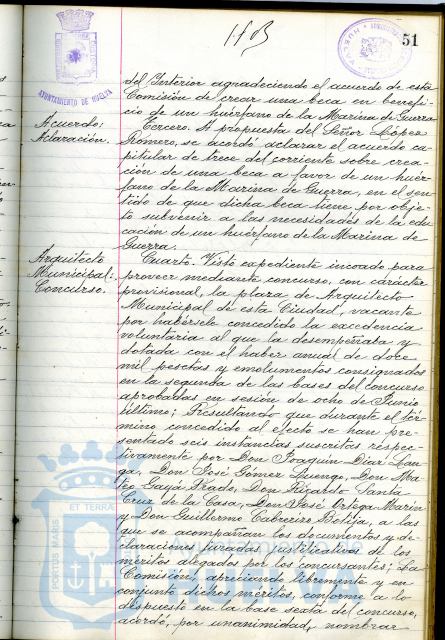 1103
51
AYUNTAMIENTO DE HUELVA
del Interior agradeciendo el acuerdo de esta
Comisión de crear una beca en benefi-
cio de un huérfano de la Marina de Guerra
Acuerdo:
Aclaración.
Tercero. A propuesta del Señor López
Romero, se acordó aclarar el acuerdo ca-
pitular de trece del corriente sobre crea-
ción de una beca a favor de un huér-
fano de la Marina de Guerra, en el sen-
tido de que dicha beca tiene por obje-
to subvenir a las necesidades de la edu-
cación de un huérfano de la Marina de
Guerra.
Arquitecto
Municipal:
Concurso.
Cuarto. Visto expediente incoado para
proveer mediante concurso, con carácter
provisional, la plaza de Arquitecto
Municipal de esta Ciudad, vacante
por habérsele concedido la excedencia
voluntaria al que la desempeñaba y
dotada con el haber anual de doce
mil pesetas y emolumentos consignados
en la segunda de las bases del concurso
aprobadas en sesión de ocho de Junio
último; Resultando que durante el tér-
mino concedido al efecto se han pre-
sentado seis instancias suscritas respec-
tivamente por Don Joaquín Díaz Lan-
ga, Don José Gómez Luengo, Don Ma-
teo Gayá Prado, Don Ricardo Santa
Cruz de la Casa, Don José Ortega Marín
y Don Guillermo Cabrerizo Botija, a las
que se acompañan los documentos y de-
claraciones juradas justificativos de los
méritos alegados por los concursantes; La
Comisión, apreciando libremente y en
conjunto dichos méritos, conforme a lo
dispuesto en la base sexta del concurso,
acordó, por unanimidad, nombrar
PORTUS MARIS
ET TERRAE